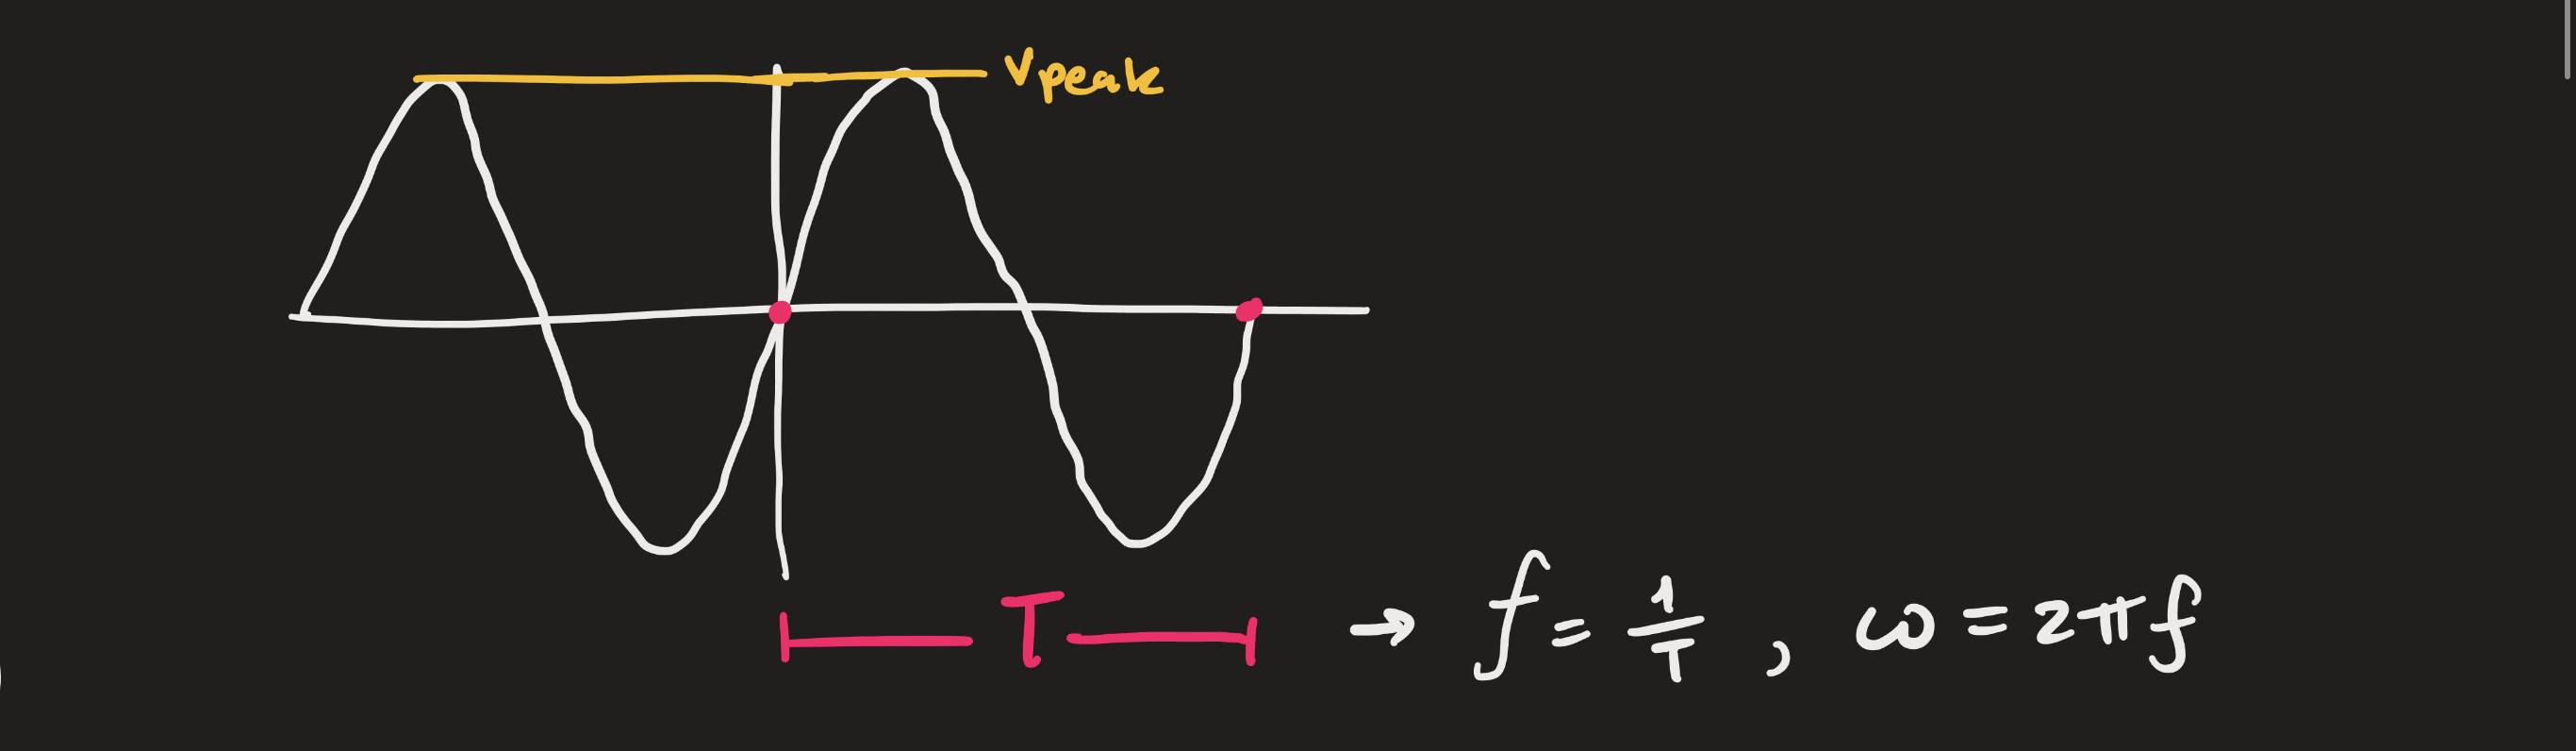 Vpeak
T → f = 1/T , ω = 2πf